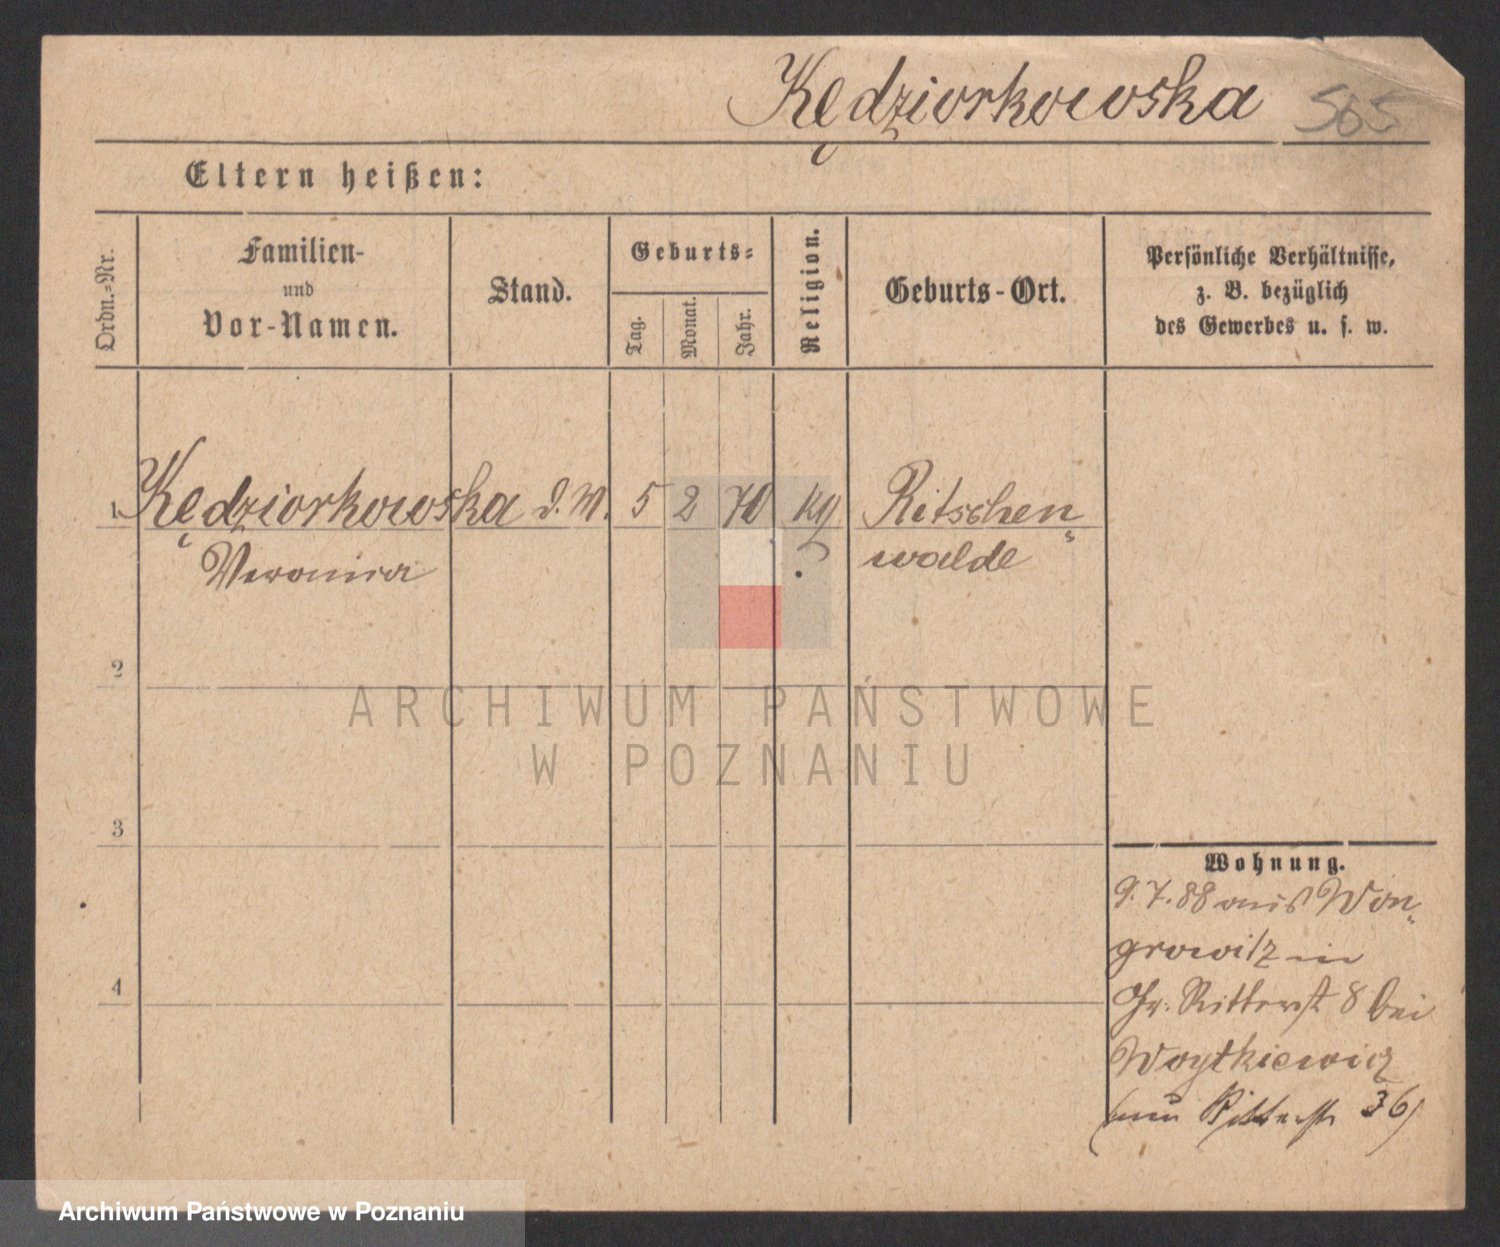 Kędziorkowska 565
Eltern heißen:
Ordn.-Nr.
Familien-
und
Vor-Namen.
Stand.
Geburts-
Tag.
Monat.
Jahr.
Religion.
Geburts-Ort.
Persönliche Verhältnisse,
z. B. bezüglich
des Gewerbes u. s. w.
1 Kędziorkowska d. M. 5 2 70 kg Ritschen„
Veronica walde
2
3
4
Wohnung.
9. 7. 88 aus Won„
growitz in
Gr. Ritterst 8 bei
Woytkiewicz
(nun Ritterstr 36)
ARCHIWUM PAŃSTWOWE
W POZNANIU
Archiwum Państwowe w Poznaniu